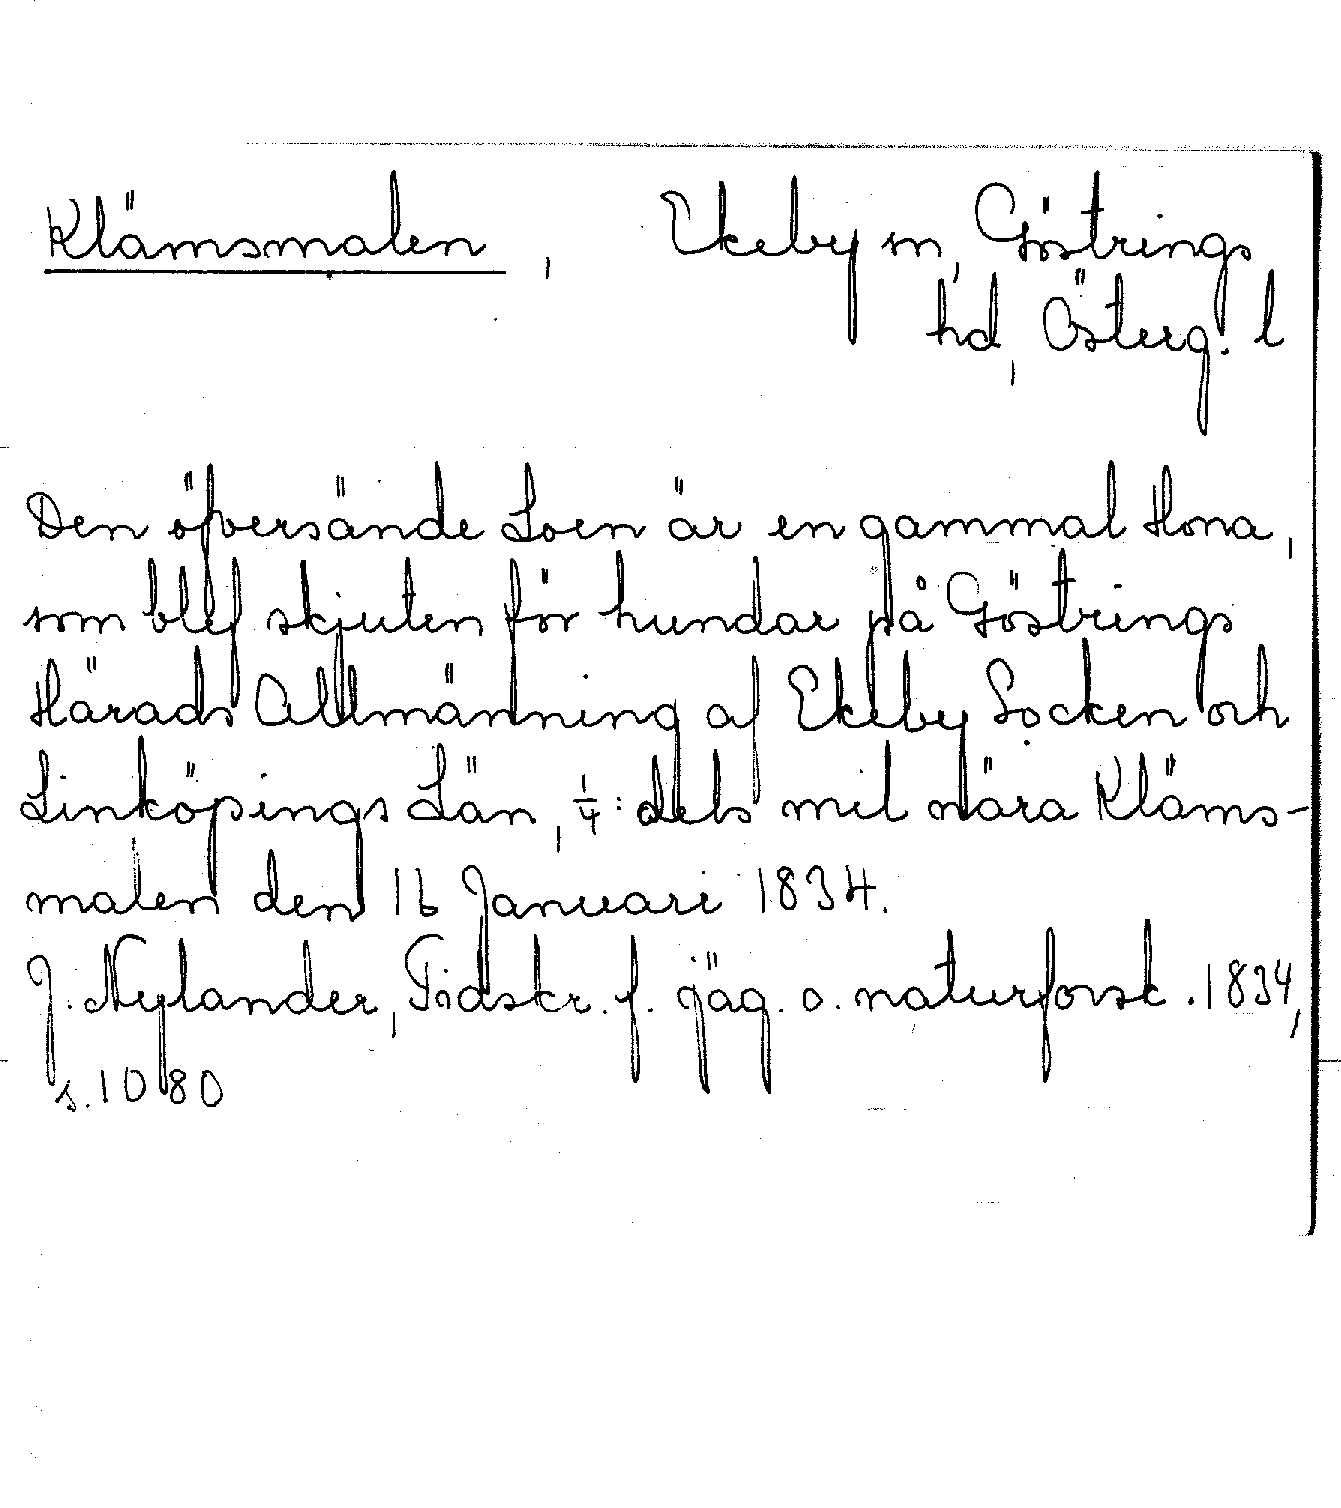 Klämsmalen, Ekeby sn, Göstrings
hd, Österg. l
Den öfversände Loen är en gammal Hona,
som blef skjuten för hundar på Göstrings
Härads Allmänning af Ekeby Socken och
Linköpings Län, 1/4: dels mil nära Kläms-
malen den 16 Januari 1834.
J. Nylander, Tidskr. f. jäg. o. naturforsk. 1834,
s. 1080